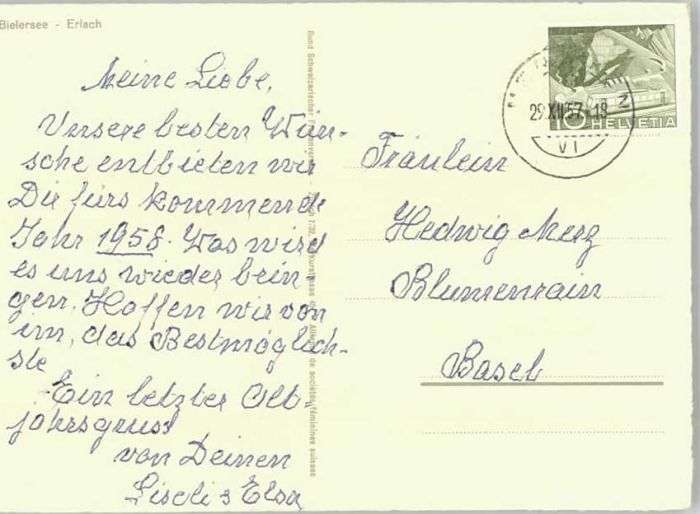 Bielersee - Erlach
Meine Liebe,
Unsere besten Wün-
sche entbieten wir
Dir fürs kommende
Jahr 1958. Was wird
es uns wieder brin-
gen. Hoffen wir von
im, das Bestmöglich-
ste
Ein letzter Alt-
jahrsgruss
von Deinen
Liseli & Elsa
Bund Schweizerischer
Alliance de sociétés féminines suisses
29.XII.57.-18
VI
10 HELVETIA
Fräulein
Hedwig Merz
Blumenrain
Basel